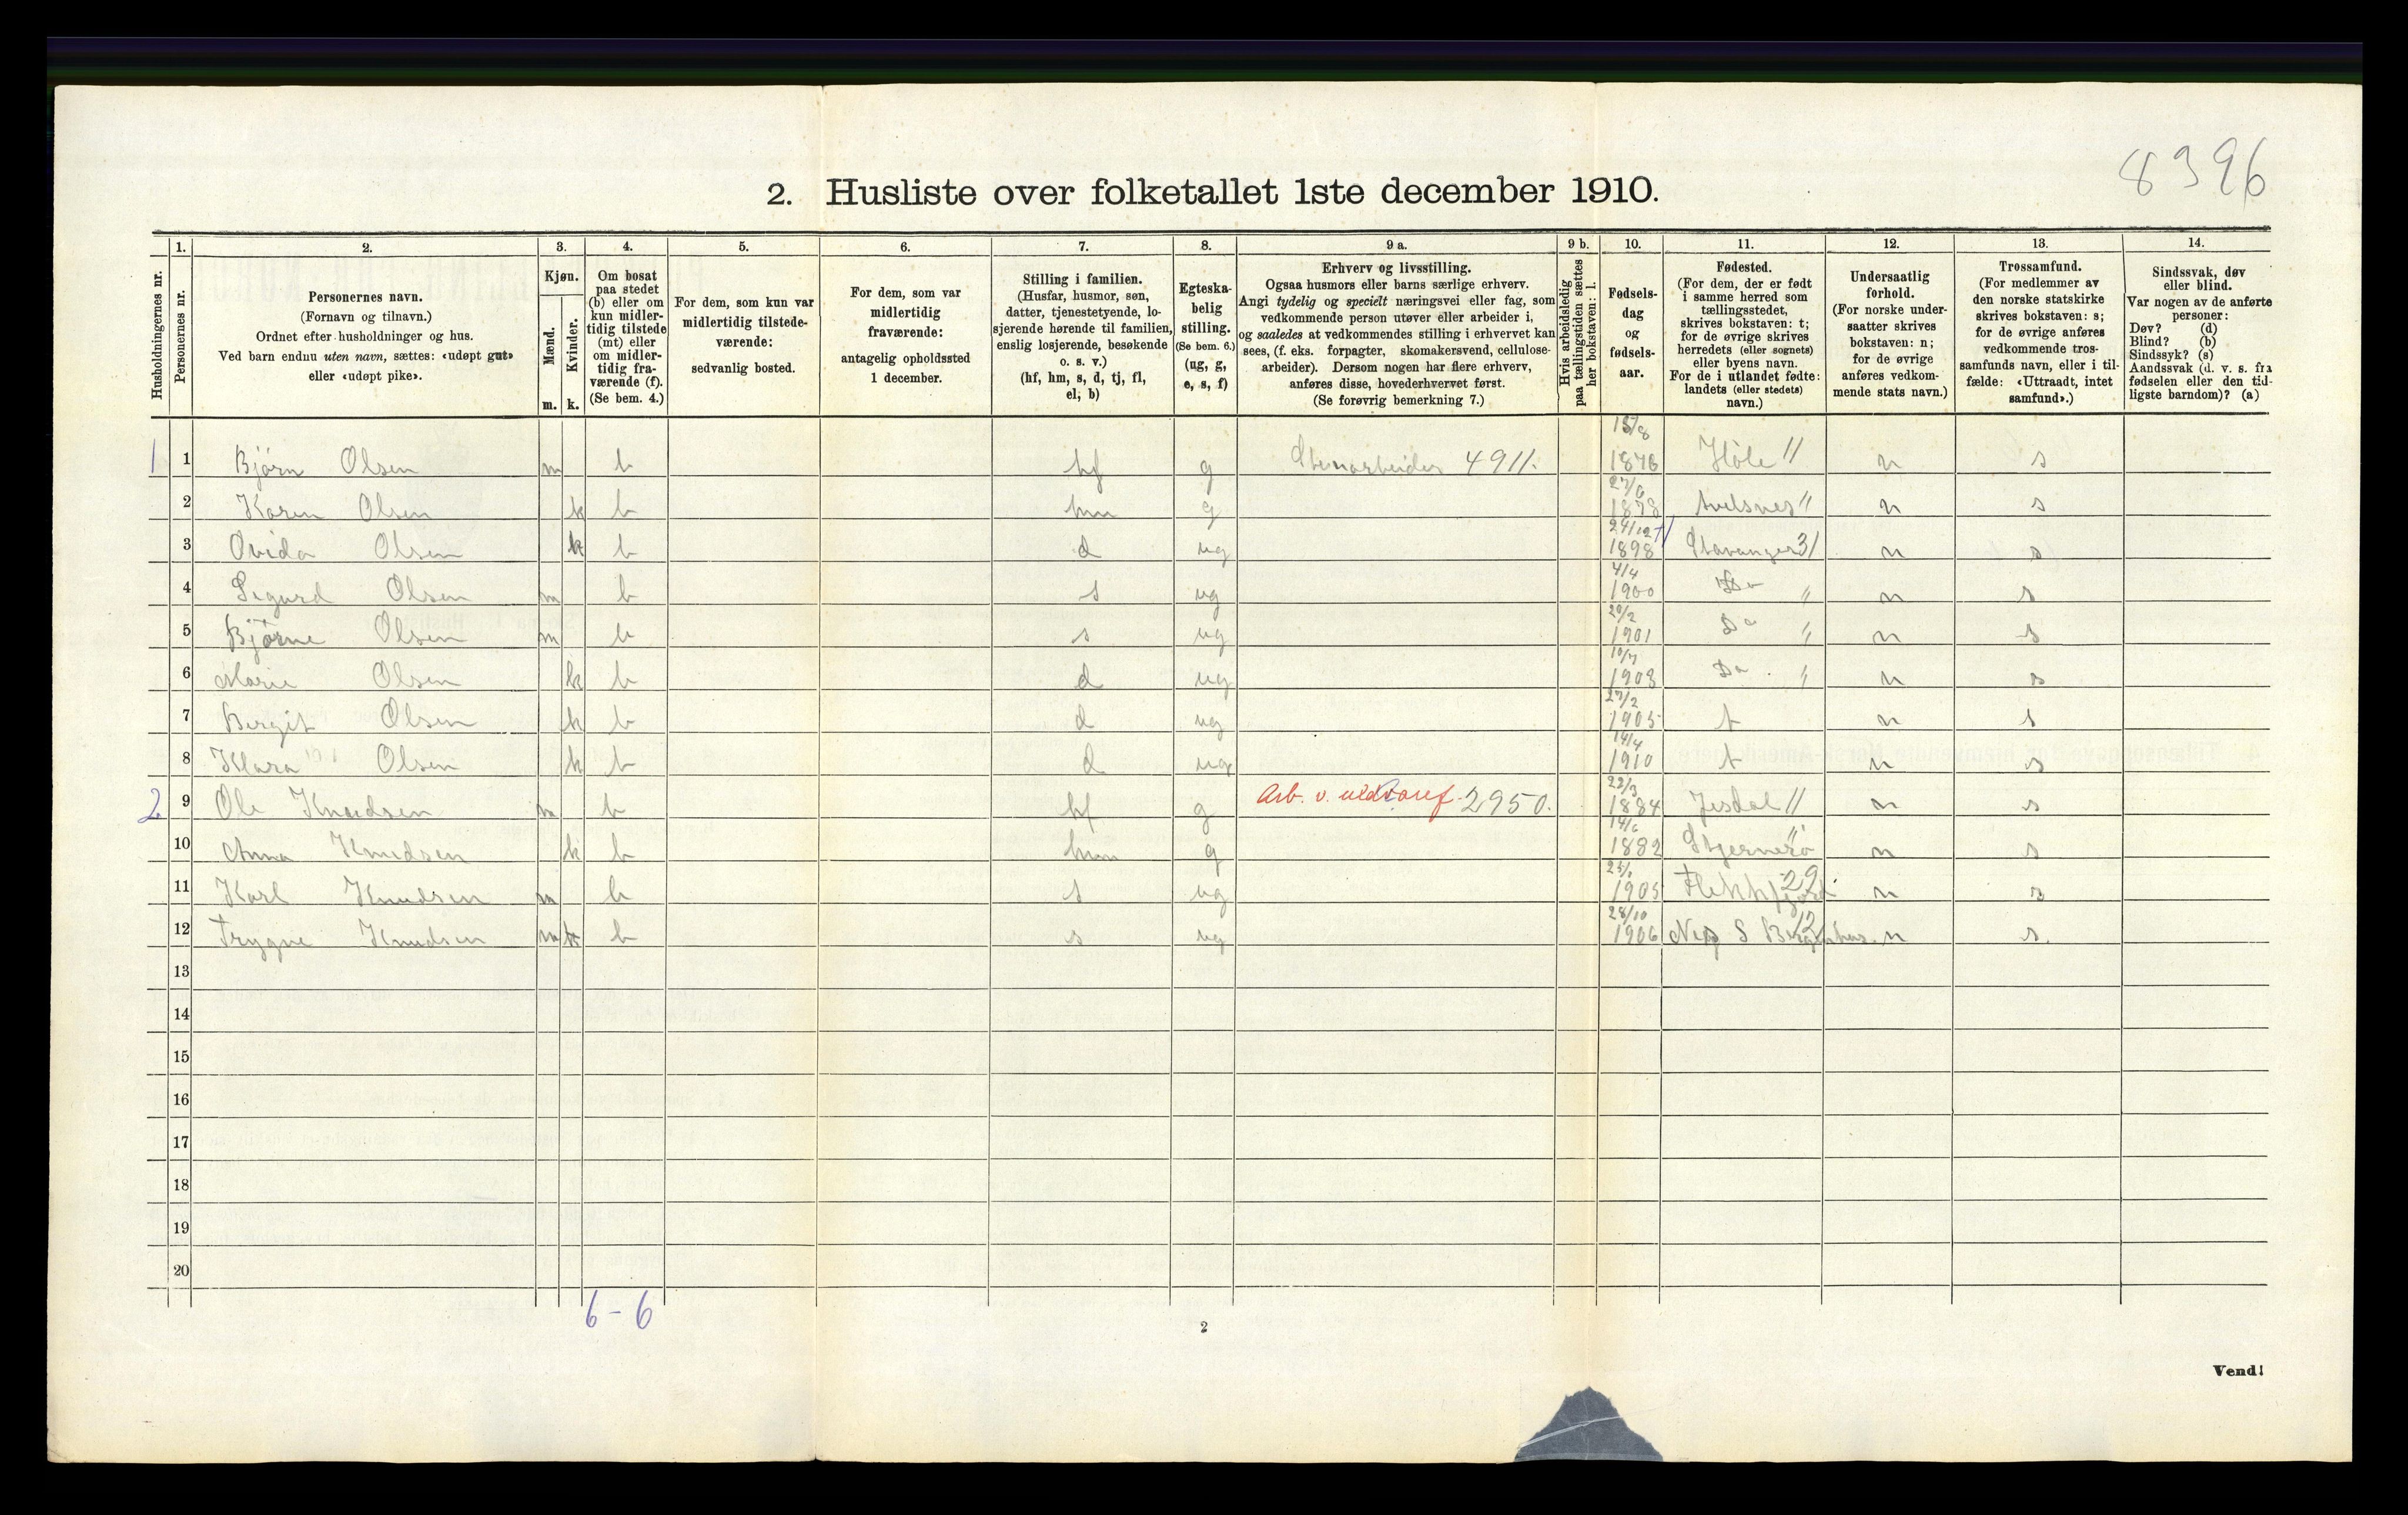 8396
2. Husliste over folketallet 1ste december 1910.
Husholdningernes nr.
1. Personernes nr.
2. Personernes navn.
(Fornavn og tilnavn.)
Ordnet efter husholdninger og hus.
Ved barn endnu uten navn, sættes: «udøpt gut»
eller «udøpt pike».
3. Kjøn.
Mænd. m.
Kvinder. k.
4. Om bosat
paa stedet
(b) eller om
kun midler-
tidig tilstede
(mt) eller
om midler-
tidig fra-
værende (f).
(Se bem. 4.)
5. For dem, som kun var
midlertidig tilstede-
værende:
sedvanlig bosted.
6. For dem, som var
midlertidig
fraværende:
antagelig opholdssted
1 december.
7. Stilling i familien.
(Husfar, husmor, søn,
datter, tjenestetyende, lo-
sjerende hørende til familien,
enslig losjerende, besøkende
o. s. v.)
(hf, hm, s, d, tj, fl,
el, b)
8. Egteska-
belig
stilling.
(Se bem. 6.)
(ug, g,
e, s, f)
9 a. Erhverv og livsstilling.
Ogsaa husmors eller barns særlige erhverv.
Angi tydelig og specielt næringsvei eller fag, som
vedkommende person utøver eller arbeider i,
og saaledes at vedkommendes stilling i erhvervet kan
sees, (f. eks. forpagter, skomakersvend, cellulose-
arbeider). Dersom nogen har flere erhverv,
anføres disse, hovederhvervet først.
(Se forøvrig bemerkning 7.)
9 b. Hvis arbeidsledig
paa tællingstiden sættes
her bokstaven: l.
10. Fødsels-
dag
og
fødsels-
aar.
11. Fødested.
(For dem, der er født
i samme herred som
tællingsstedet,
skrives bokstaven: t;
for de øvrige skrives
herredets (eller sognets)
eller byens navn.
For de i utlandet fødte:
landets (eller stedets)
navn.)
12. Undersaatlig
forhold.
(For norske under-
saatter skrives
bokstaven: n;
for de øvrige
anføres vedkom-
mende stats navn.)
13. Trossamfund.
(For medlemmer av
den norske statskirke
skrives bokstaven: s;
for de øvrige anføres
vedkommende tros-
samfunds navn, eller i til-
fælde: «Uttraadt, intet
samfund».)
14. Sindssvak, døv
eller blind.
Var nogen av de anførte
personer:
Døv? (d)
Blind? (b)
Sindssyk? (s)
Aandssvak (d. v. s. fra
fødselen eller den tid-
ligste barndom)? (a)
1 1 Bjørn Olsen m b hf g Stenarbeider 4911. 1876 Høle 11 n s
2 Karen Olsen k b hm g 27/6 1878 11 n s
3 Ovida Olsen k b d ug 24/12 1898 Stavanger 31 n s
4 Sigurd Olsen m b s ug 4/4 1900 Do " n s
5 Bjarne Olsen m b s ug 20/2 1901 Do " n s
6 Marie Olsen k b d ug 10/7 1903 Do " n s
7 Bergit Olsen k b d ug 27/2 1905 t n s
8 Klara Olsen k b d ug 14/4 1910 t n s
2 9 Ole Knudsen m b hf g Arb. v. uldvaref. 2950. 22/3 1884 Jesdal 11 n s
10 Anna Knudsen k b hm g 14/6 1882 Stjernerø 11 n s
11 Karl Knudsen m b s ug 1905 Flekkfjord 29 n s
12 Trygve Knudsen m k b s ug 28/10 1906 S Bergenhus 12 n s.
13
14
15
16
17
18
19
20
6 - 6
2
Vend!